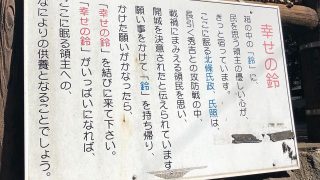 幸せの鈴
箱の中の「鈴」に
民を思う領主の優しい心が、
きっと宿っています。
ここに眠る北條氏政、氏照は、
長引く秀吉との攻防戦の中、
戦禍にまみえる領民を思い、
開城を決意されたと伝えられています
願い事をかけて「鈴」を持ち帰り、
かけた願いがかなったら、
「幸せの鈴」を結びに来て下さい。
「幸せの鈴」がいっぱいになれば、
ここに眠る領主への、
なによりの供養となることでしょう。